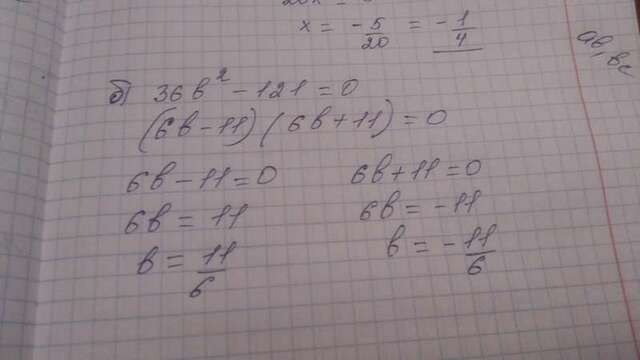 x = -5/20 = -1/4
б) 36в² - 121 = 0
(6в - 11) (6в + 11) = 0
6в - 11 = 0 6в + 11 = 0
6в = 11 6в = -11
в = 11/6 в = -11/6